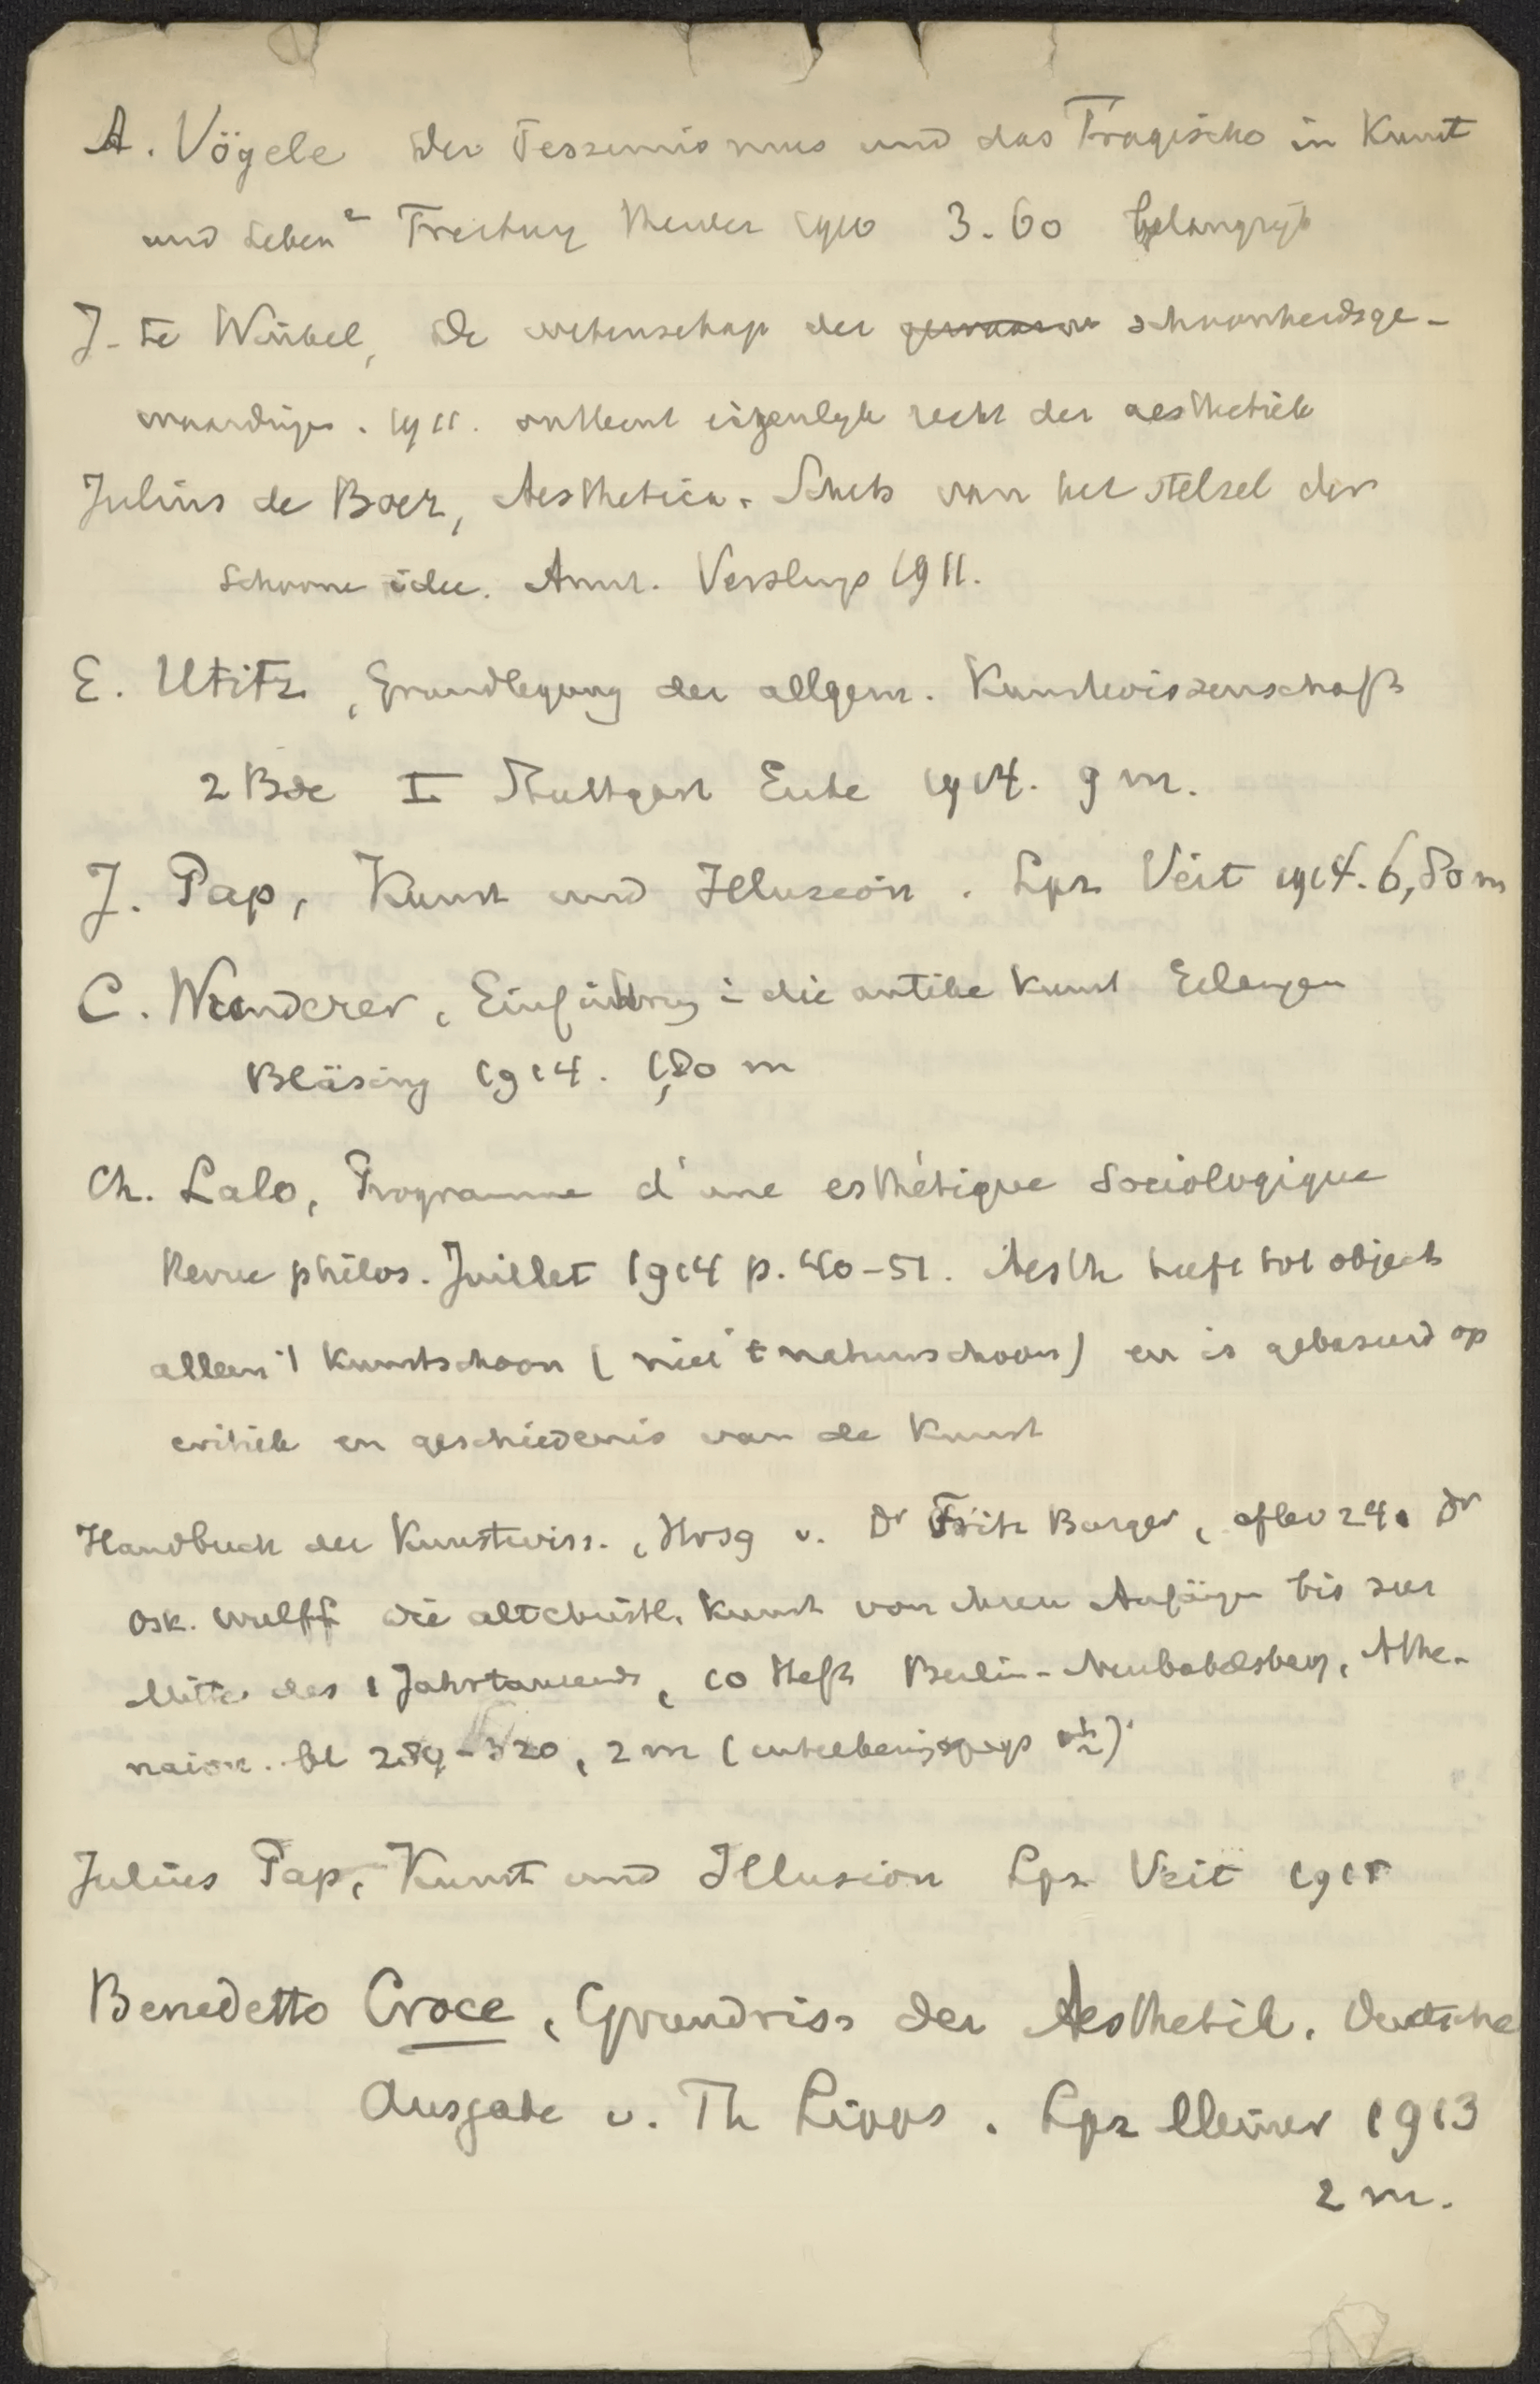 A. Vögele Der Pessimismus und das Tragische in Kunst
und Leben² Freiburg Herder 1910 3.60 belangrijk
J. te Winkel, De wetenschap der schoonheidsge-
waardingen. 1911. ontkent eigenlijk recht der aesthetiek
Julius de Boer, Aesthetica. Schets van het stelsel der
schoone idee. Amst. Versluys 1911.
E. Utitz, Grundlegung der allgem. Kunstwissenschaft
2 Bde I Stuttgart Enke 1914. 9 m.
J. Pap, Kunst und Illusion. Lpz Veit 1914. 6,80 m
C. Wunderer, Einführung i die antike Kunst Erlangen
Bläsing 1914. 1,80 m
Ch. Lalo, Programme d'une esthétique sociologique
Revue philos. Juillet 1914 p. 40-51. Aesth heeft tot object
alleen 't kunstschoon (niet 't natuurschoon) en is gebaseerd op
critiek en geschiedenis van de kunst
Handbuch der Kunstwiss., Hrsg v. Dr Fritz Burger, aflev 24. Dr
Osk. Wulff Die altchristl. Kunst von ihren Anfängen bis zur
Mitte des 1 Jahrtausends, 10 Heft Berlin-Neubabelsberg, Athe-
naion. bl 289-320, 2 m
Julius Pap, Kunst und Illusion Lpz Veit 1915
Benedetto Croce, Grundriss der Aesthetik. Deutsche
Ausgabe v. Th Lipps. Lpz Meiner 1913
2 m.